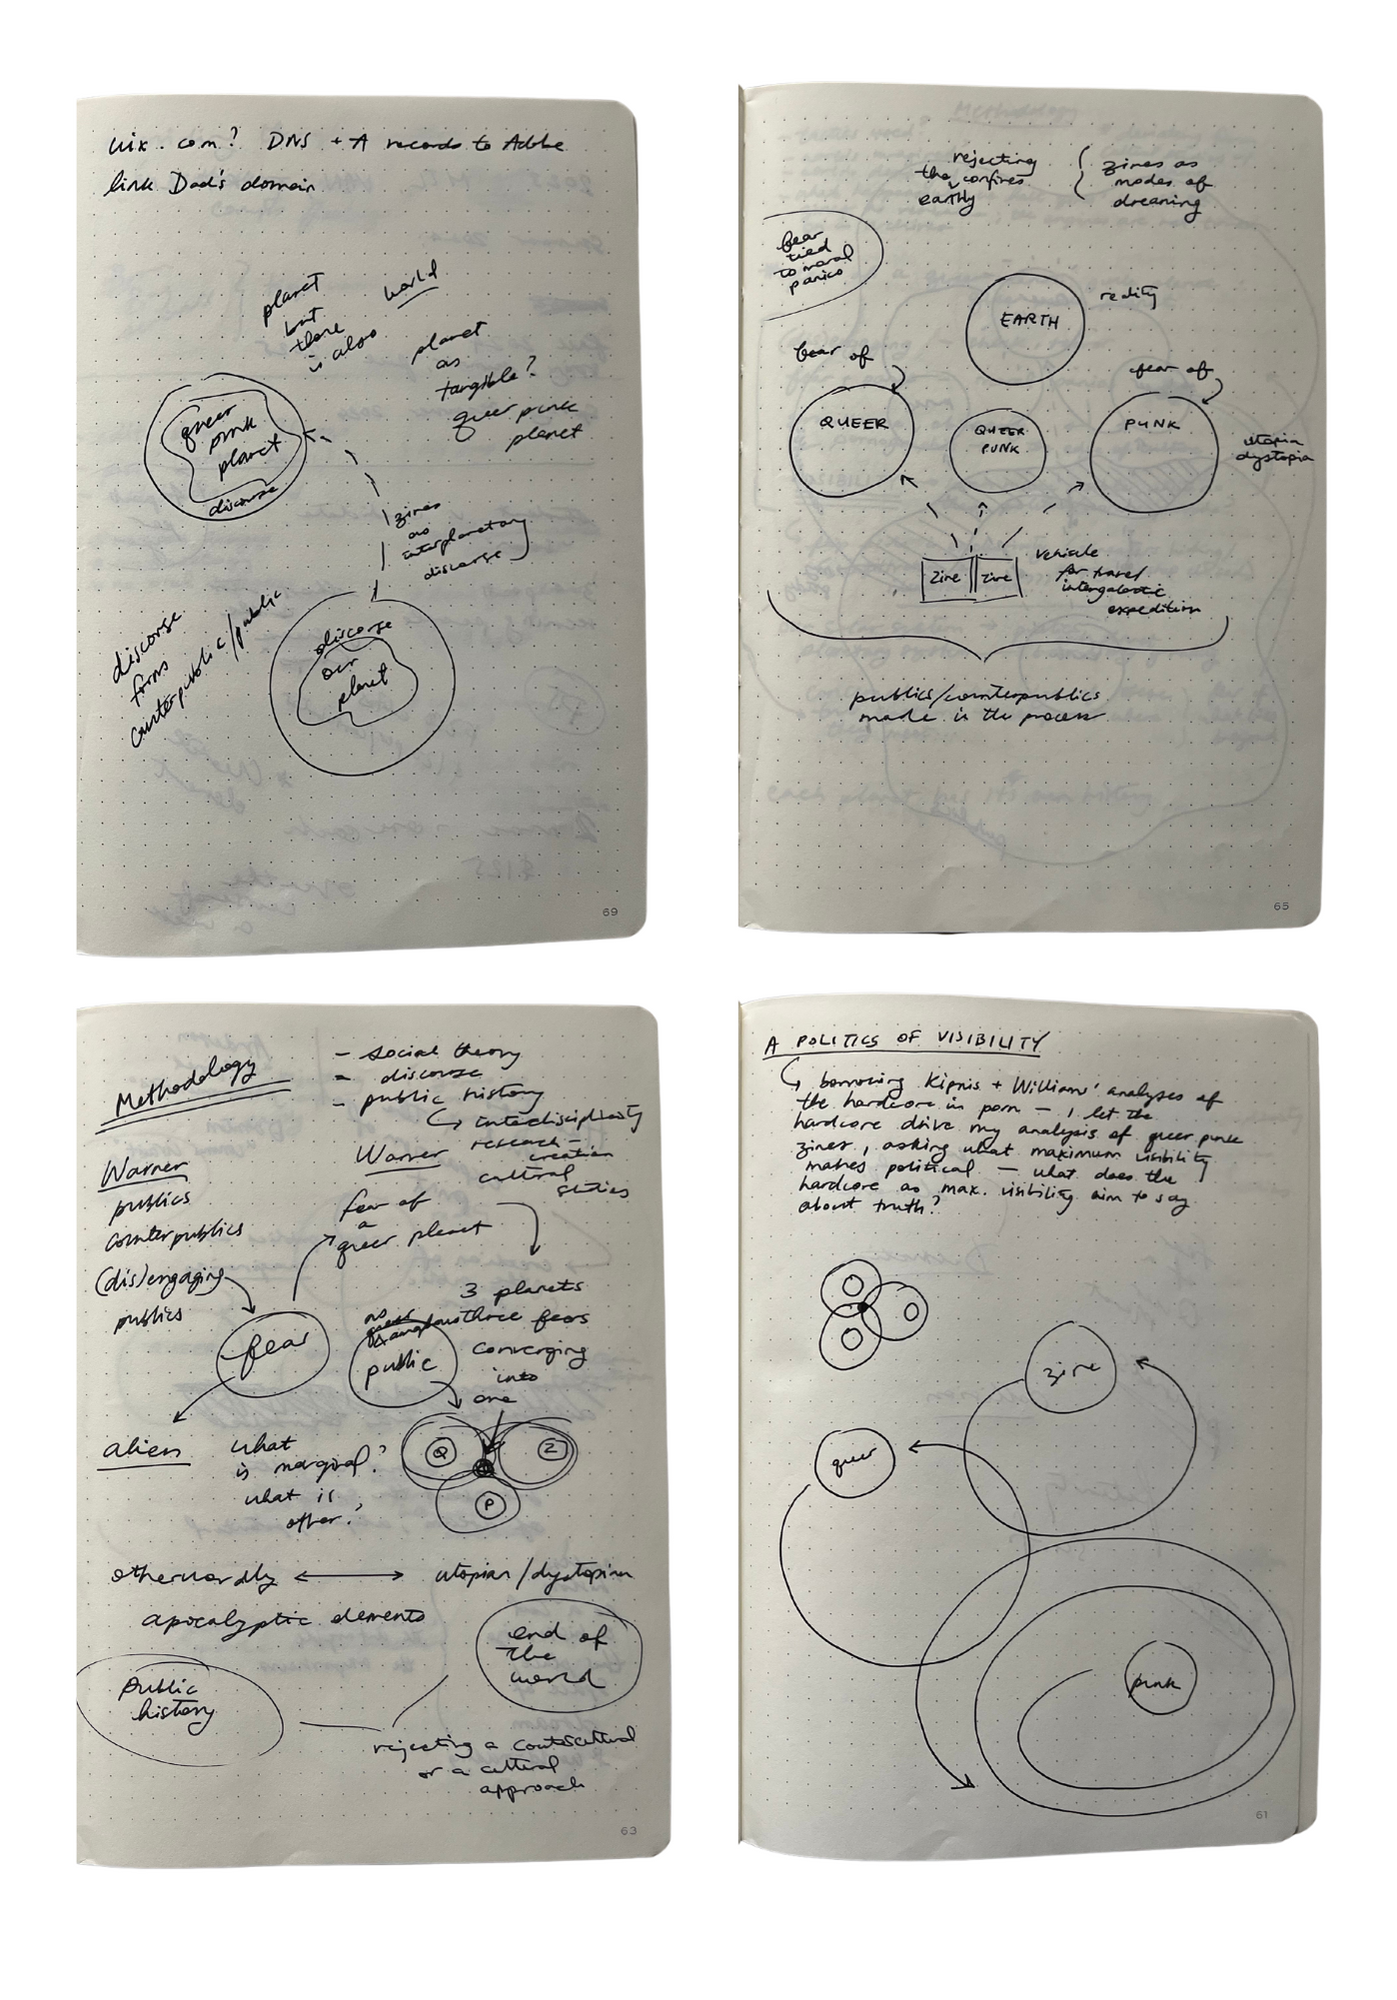 wix.com? DNS + A records to Adobe
link Dad's domain
planet
but
there
is also
world
planet
as
tangible?
queer punk
planet
queer
punk
planet
discourse
zines
as
interplanetary
discourse
discorse
forms
counterpublic/public
discorse
our
planet
69
rejecting
the confines
earthly
zines as
modes of
dreaming
fear
tied
to moral
panics
EARTH
reality
fear of
fear of
QUEER
QUEER
PUNK
PUNK
utopia
dystopia
zine
zine
vehicle
for travel
intergalactic
expedition
publics/counterpublics
made in the process
65
Methodology
- social theory
- discourse
- public history
interdisciplinarity
research-
creation
cultural
studies
Warner
publics
counterpublics
(dis)engaging
publics
Warner
fear of
a
queer planet
fear
public
3 planets
three fears
converging
into
one
alien
what
is marginal?
what is
other?
Q
Z
P
otherworldly
utopian/dystopian
apocalyptic elements
end of
the
world
public
history
rejecting a countercultural
or a cultural
approach
63
A POLITICS OF VISIBILITY
borrowing Kipnis + Williams' analyses of
the hardcore in porn — I let the
hardcore drive my analysis of queer punk
zines, asking what maximum visibility
makes political — what does the
hardcore as max. visibility aim to say
about truth?
zine
queer
punk
61